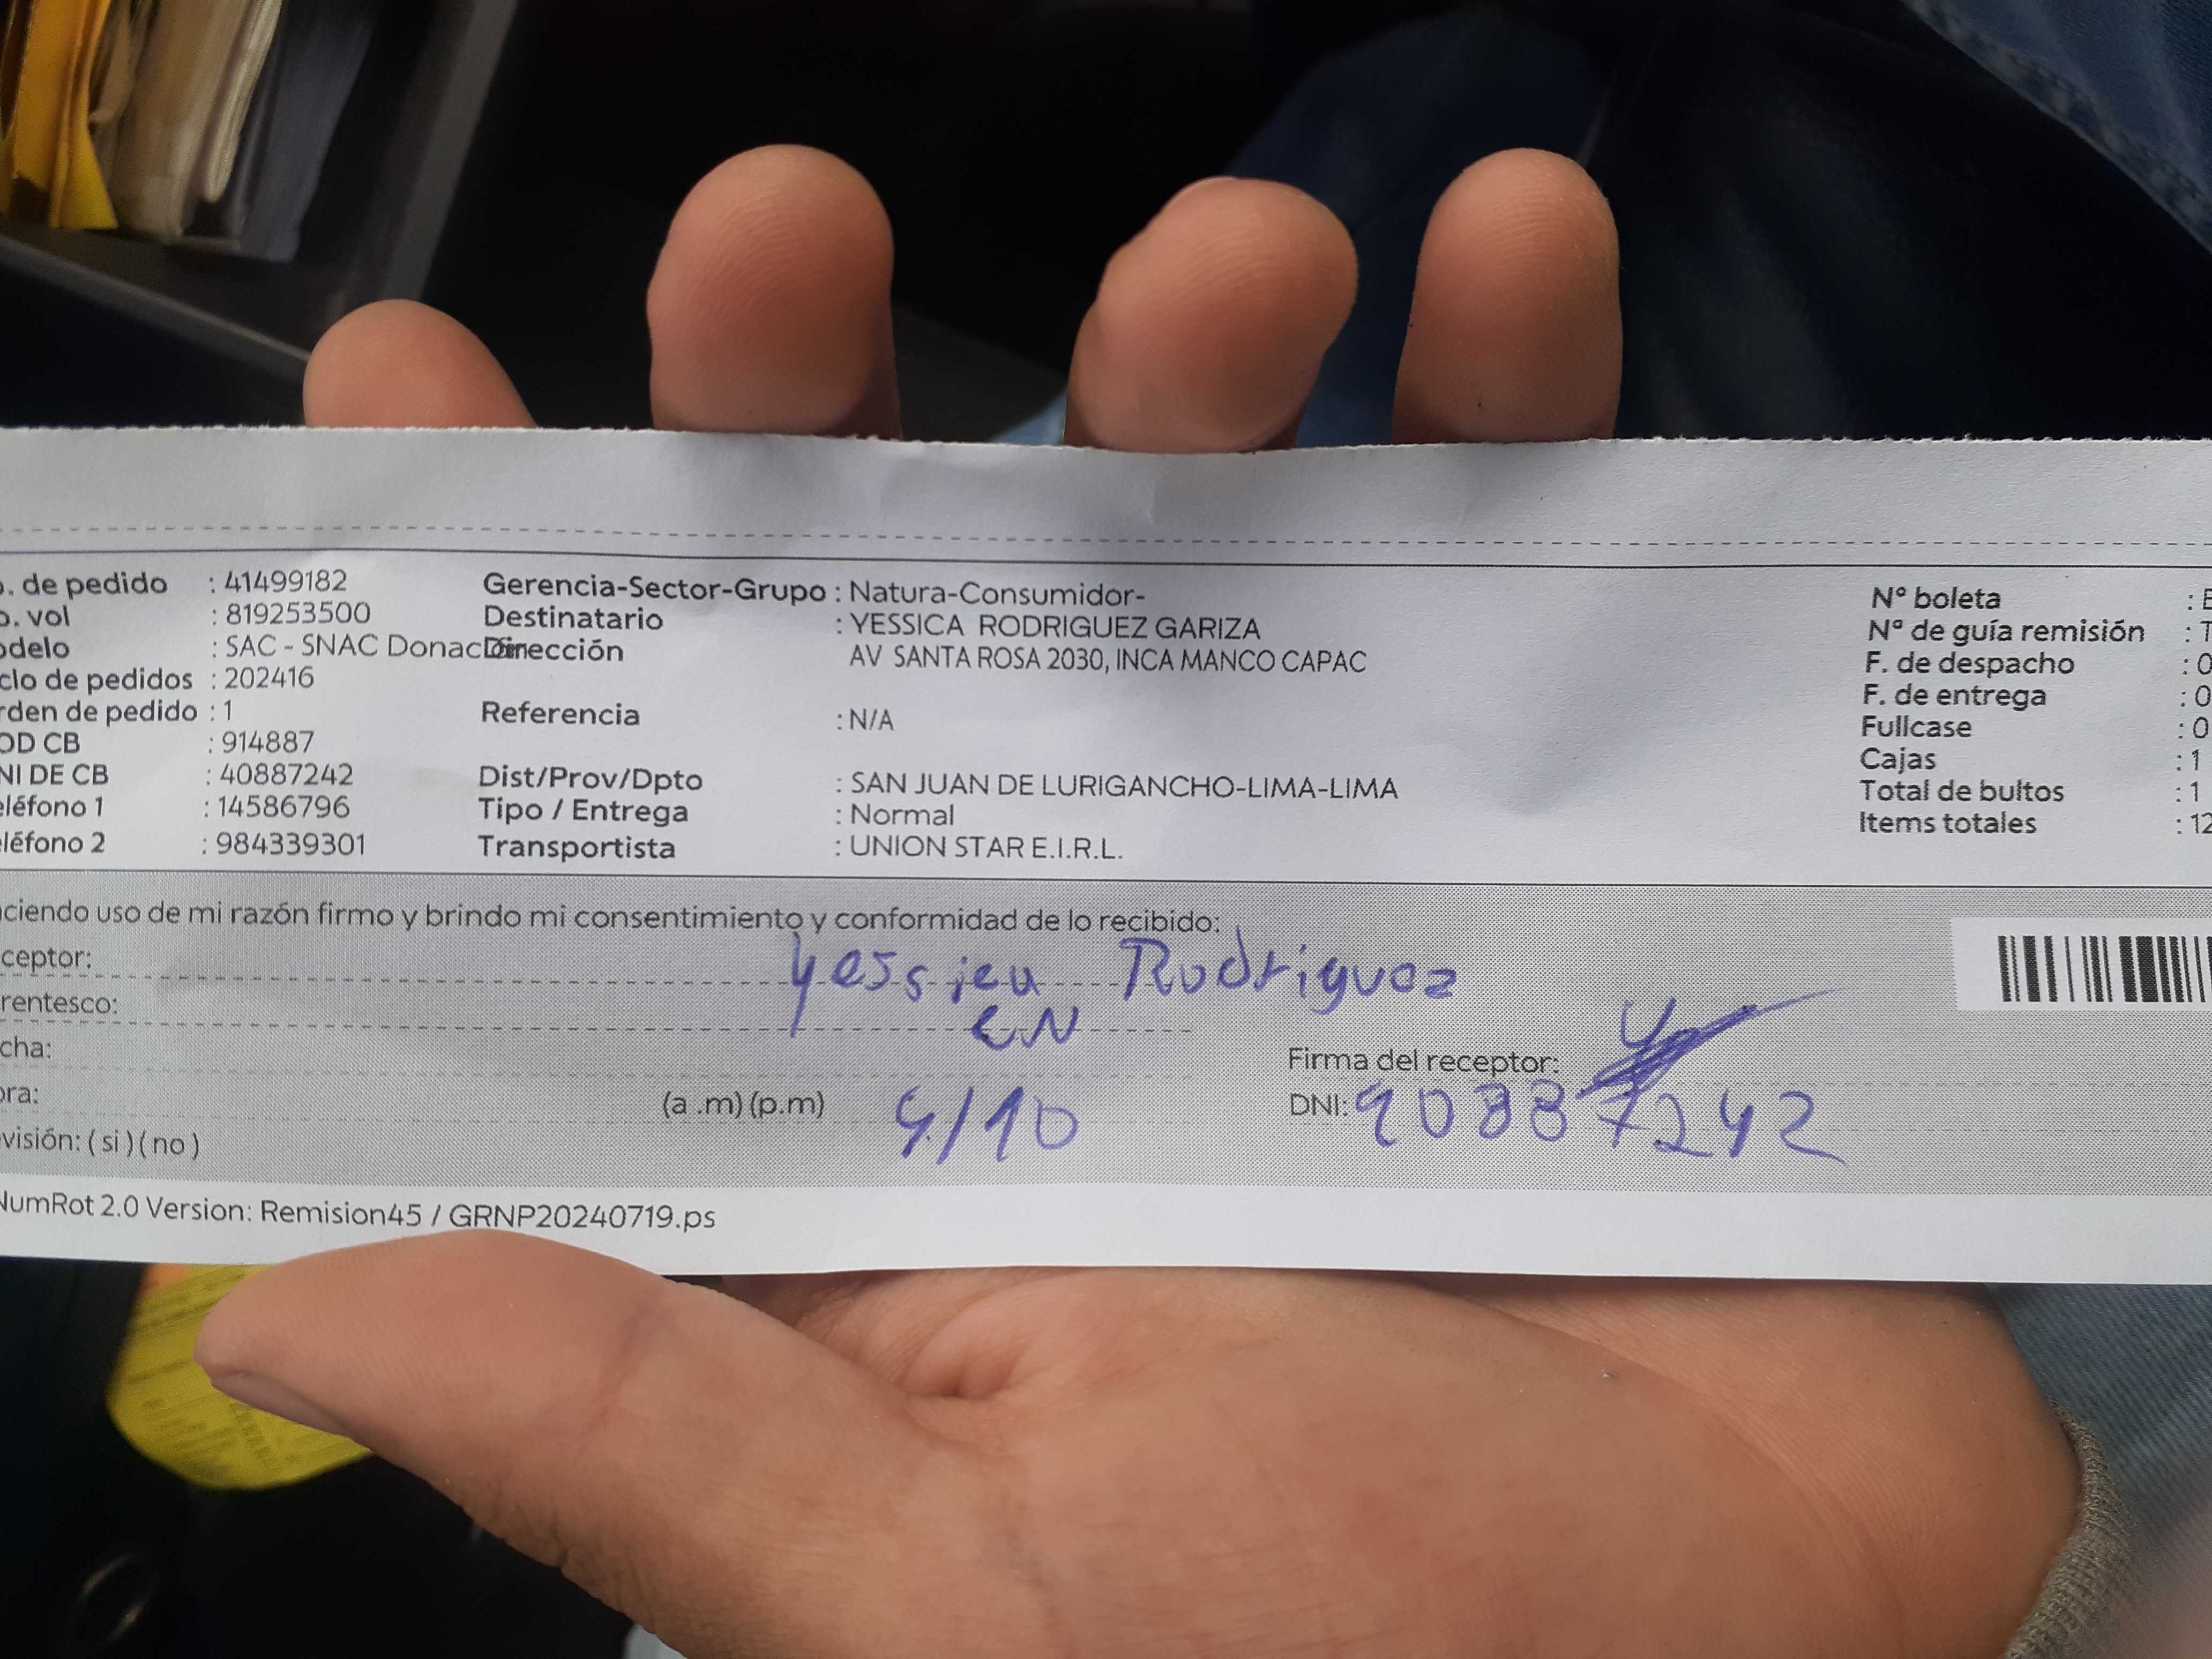 o. de pedido : 41499182 Gerencia-Sector-Grupo : Natura-Consumidor- Nº boleta : E
o. vol : 819253500 Destinatario : YESSICA RODRIGUEZ GARIZA Nº de guía remisión : T
odelo : SAC - SNAC Donación Dirección AV SANTA ROSA 2030, INCA MANCO CAPAC F. de despacho : 0
clo de pedidos : 202416 F. de entrega : 0
rden de pedido : 1 Referencia : N/A Fullcase : 0
OD CB : 914887 Cajas : 1
NI DE CB : 40887242 Dist/Prov/Dpto : SAN JUAN DE LURIGANCHO-LIMA-LIMA Total de bultos : 1
eléfono 1 : 14586796 Tipo / Entrega : Normal Items totales : 12
eléfono 2 : 984339301 Transportista : UNION STAR E.I.R.L.
aciendo uso de mi razón firmo y brindo mi consentimiento y conformidad de lo recibido:
ceptor: Yessica Rodriguez
rentesco:
cha: Firma del receptor:
ora: (a .m) (p.m) 4/10 DNI: 40887242
visión: ( si ) ( no )
NumRot 2.0 Version: Remision45 / GRNP20240719.ps